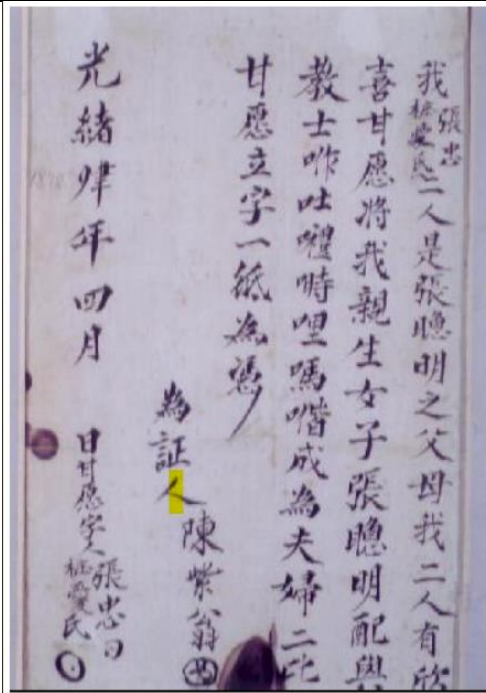 我張忠愛民二人是張聰明之父母我二人有欣
喜甘愿將我親生女子張聰明配與
教士咋吐哩嗎喈成為夫婦二比
甘愿立字一紙為憑
為証人陳紫翁
光緒肆年四月 日甘愿字人張忠愛民